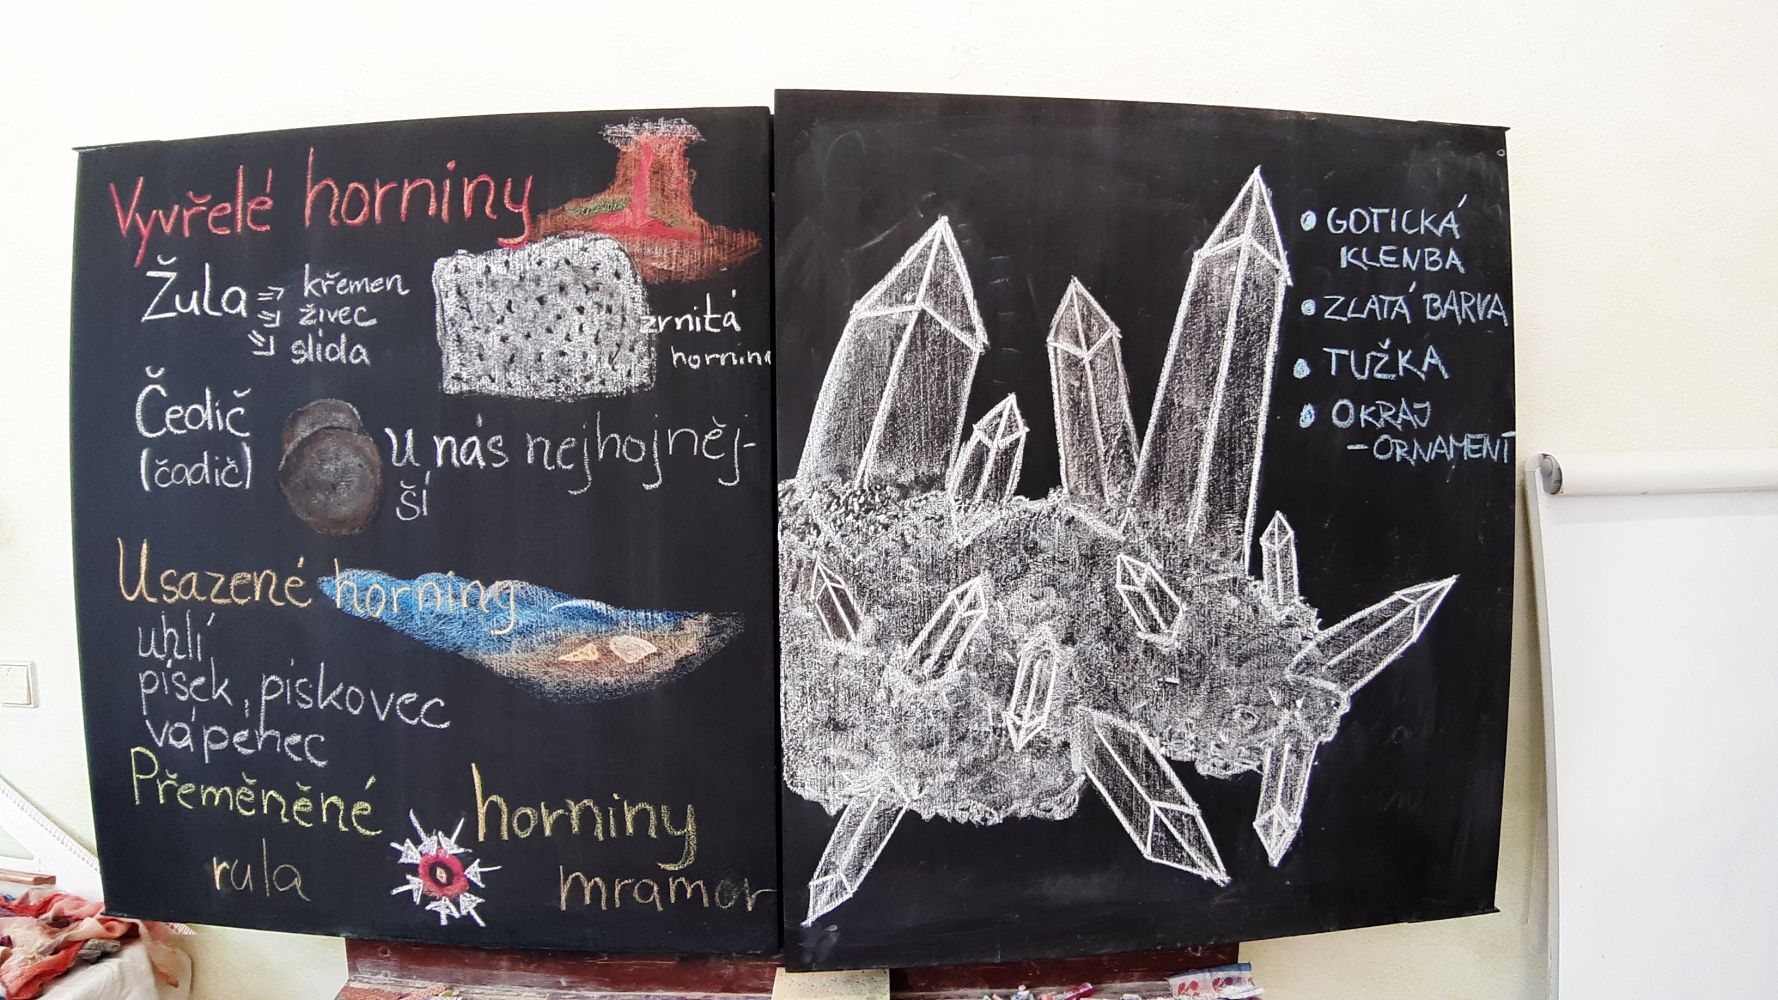 Vyvřelé horniny
Žula
křemen
živec
slída
zrnitá
hornina
Čedič
(čadič)
u nás nejhojněj-
ší
Usazené horniny
uhlí
písek, pískovec
vápenec
Přeměněné horniny
rula
mramor
• GOTICKÁ
KLENBA
• ZLATÁ BARVA
• TUŽKA
• OKRAJ
-ORNAMENT